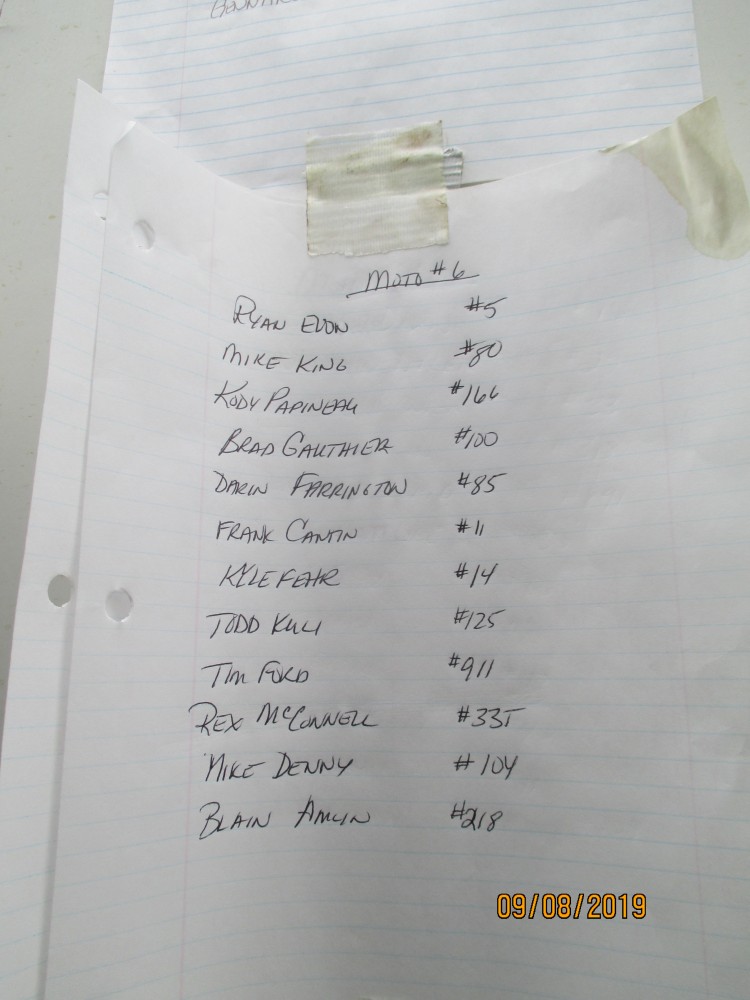 MOTO #6
RYAN EDON #5
MIKE KING #80
KODY PAPINEAU #166
BRAD GAUTHIER #100
DARIN FARRINGTON #85
FRANK CANTIN #11
KYLE FEHR #14
TODD KULI #125
TIM FORD #911
REX McCONNELL #33T
MIKE DENNY #104
BLAIN AMLIN #218
09/08/2019